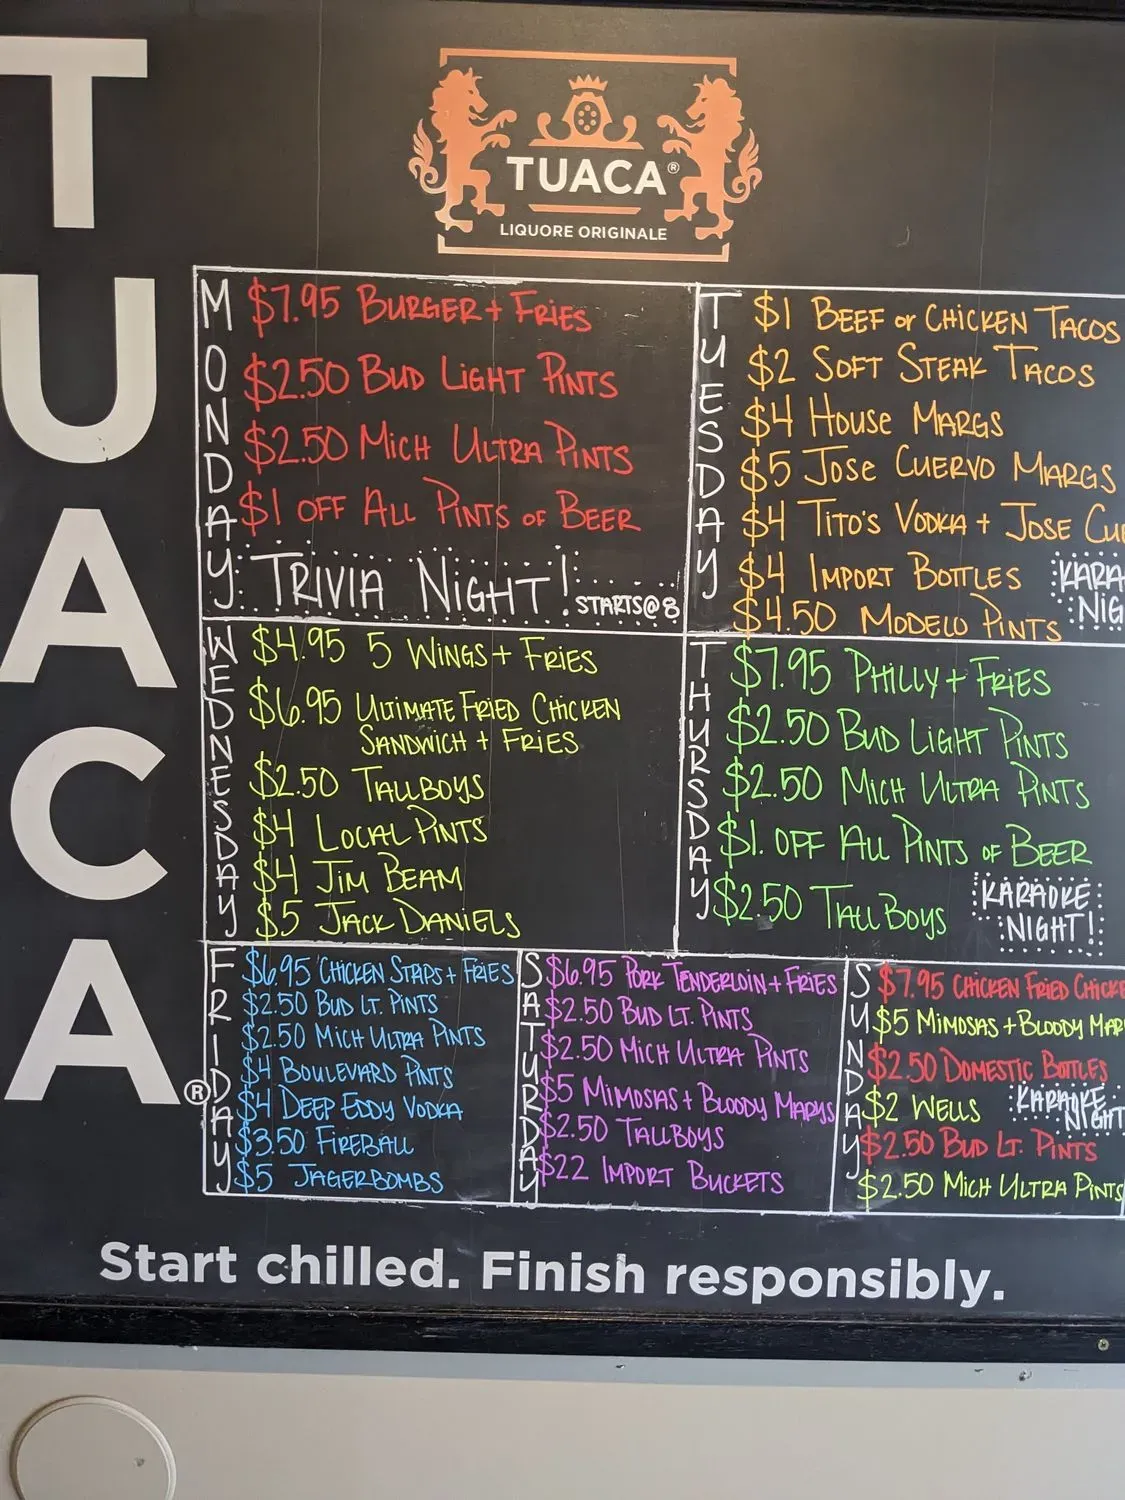 TUACA®
TUACA®
LIQUORE ORIGINALE
MONDAY
$7.95 BURGER + FRIES
$2.50 BUD LIGHT PINTS
$2.50 MICH ULTRA PINTS
$1 OFF ALL PINTS OF BEER
TRIVIA NIGHT! STARTS@8
TUESDAY
$1 BEEF or CHICKEN TACOS
$2 SOFT STEAK TACOS
$4 HOUSE MARGS
$5 JOSE CUERVO MARGS
$4 TITO'S VODKA + JOSE
$4 IMPORT BOTTLES
$4.50 MODELO PINTS
WEDNESDAY
$4.95 5 WINGS + FRIES
$6.95 ULTIMATE FRIED CHICKEN
SANDWICH + FRIES
$2.50 TALLBOYS
$4 LOCAL PINTS
$4 JIM BEAM
$5 JACK DANIELS
THURSDAY
$7.95 PHILLY + FRIES
$2.50 BUD LIGHT PINTS
$2.50 MICH ULTRA PINTS
$1. OFF ALL PINTS OF BEER
$2.50 TALL BOYS
KARAOKE
NIGHT!
FRIDAY
$6.95 CHICKEN STRIPS + FRIES
$2.50 BUD LT. PINTS
$2.50 MICH ULTRA PINTS
$4 BOULEVARD PINTS
$4 DEEP EDDY VODKA
$3.50 FIREBALL
$5 JAGERBOMBS
SATURDAY
$6.95 PORK TENDERLOIN + FRIES
$2.50 BUD LT. PINTS
$2.50 MICH ULTRA PINTS
$5 MIMOSAS + BLOODY MARYS
$2.50 TALLBOYS
$22 IMPORT BUCKETS
SUNDAY
$7.95 CHICKEN FRIED
$5 MIMOSAS + BLOODY
$2.50 DOMESTIC BOTTLES
$2 WELLS
KARAOKE
NIGHT
$2.50 BUD LT. PINTS
$2.50 MICH ULTRA PINTS
Start chilled. Finish responsibly.